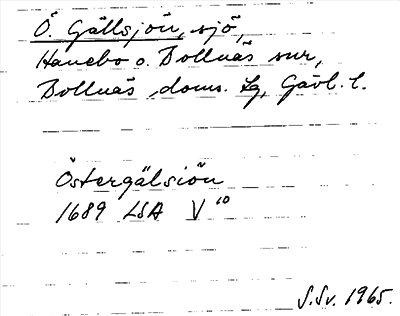 Ö. Gällsjön, sjö,
Hanebo o. Bollnäs snr,
Bollnäs doms. lg, Gävl. l.
Östergälsiön
1689 LSA V 10
S.Sv. 1965.